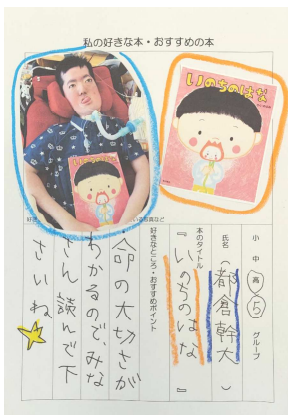 私の好きな本・おすすめの本
いのちのはな
いのちのはな
小 中 高 5 グループ
氏名（都倉幹大）
本のタイトル
『いのちのはな』
好きなところ・おすすめポイント
命の大切さが
わかるので、みな
さん読んで下
さいね